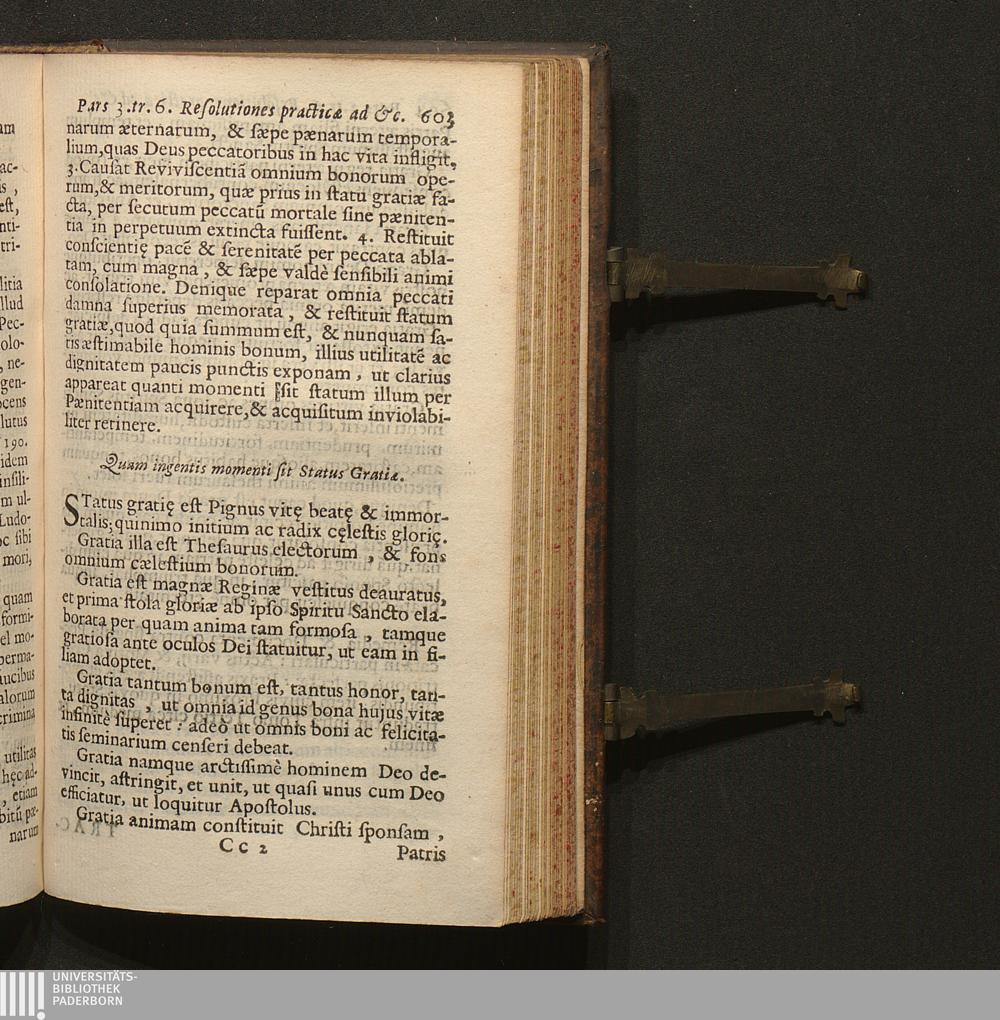 Pars 3.tr. 6. Reſolutiones practicæ ad &c. 603
narum æternarum, & ſæpe pænarum tempora-
lium,quas Deus peccatoribus in hac vita infligit,
3. Cauſat Reviviſcentiã omnium bonorum ope-
rum,& meritorum, quæ prius in ſtatu gratiæ fa-
cta, per ſecutum peccatũ mortale ſine pæniten-
tia in perpetuum extincta fuiſſent. 4. Reſtituit
conſcientię pacẽ & ſerenitatẽ per peccata abla-
tam, cum magna , & ſæpe valdè ſenſibili animi
conſolatione. Denique reparat omnia peccati
damna ſuperius memorata , & reſtituit ſtatum
gratiæ,quod quia ſummum eſt, & nunquam ſa-
tis æſtimabile hominis bonum, illius utilitatẽ ac
dignitatem paucis punctis exponam , ut clarius
appareat quanti momenti ſit ſtatum illum per
Pænitentiam acquirere,& acquiſitum inviolabi-
liter retinere.
Quam ingentis momenti ſit Status Gratiæ.
STatus gratię eſt Pignus vitę beatę & immor-
talis; quinimo initium ac radix cęleſtis glorię.
Gratia illa eſt Theſaurus electorum , & fons
omnium cæleſtium bonorum.
Gratia eſt magnæ Reginæ veſtitus deauratus,
et prima ſtola gloriæ ab ipſo Spiritu Sancto ela-
borata per quam anima tam formoſa , tamque
gratioſa ante oculos Dei ſtatuitur, ut eam in fi-
liam adoptet.
Gratia tantum bonum eſt, tantus honor, tan-
ta dignitas , ut omnia id genus bona hujus vitæ
infinitè ſuperet : adeò ut omnis boni ac felicita-
tis ſeminarium cenſeri debeat.
Gratia namque arctiſſimè hominem Deo de-
vincit, aſtringit, et unit, ut quaſi unus cum Deo
efficiatur, ut loquitur Apoſtolus.
Gratia animam conſtituit Chriſti ſponſam ,
Cc 2 Patris
UNIVERSITÄTS-
BIBLIOTHEK
PADERBORN